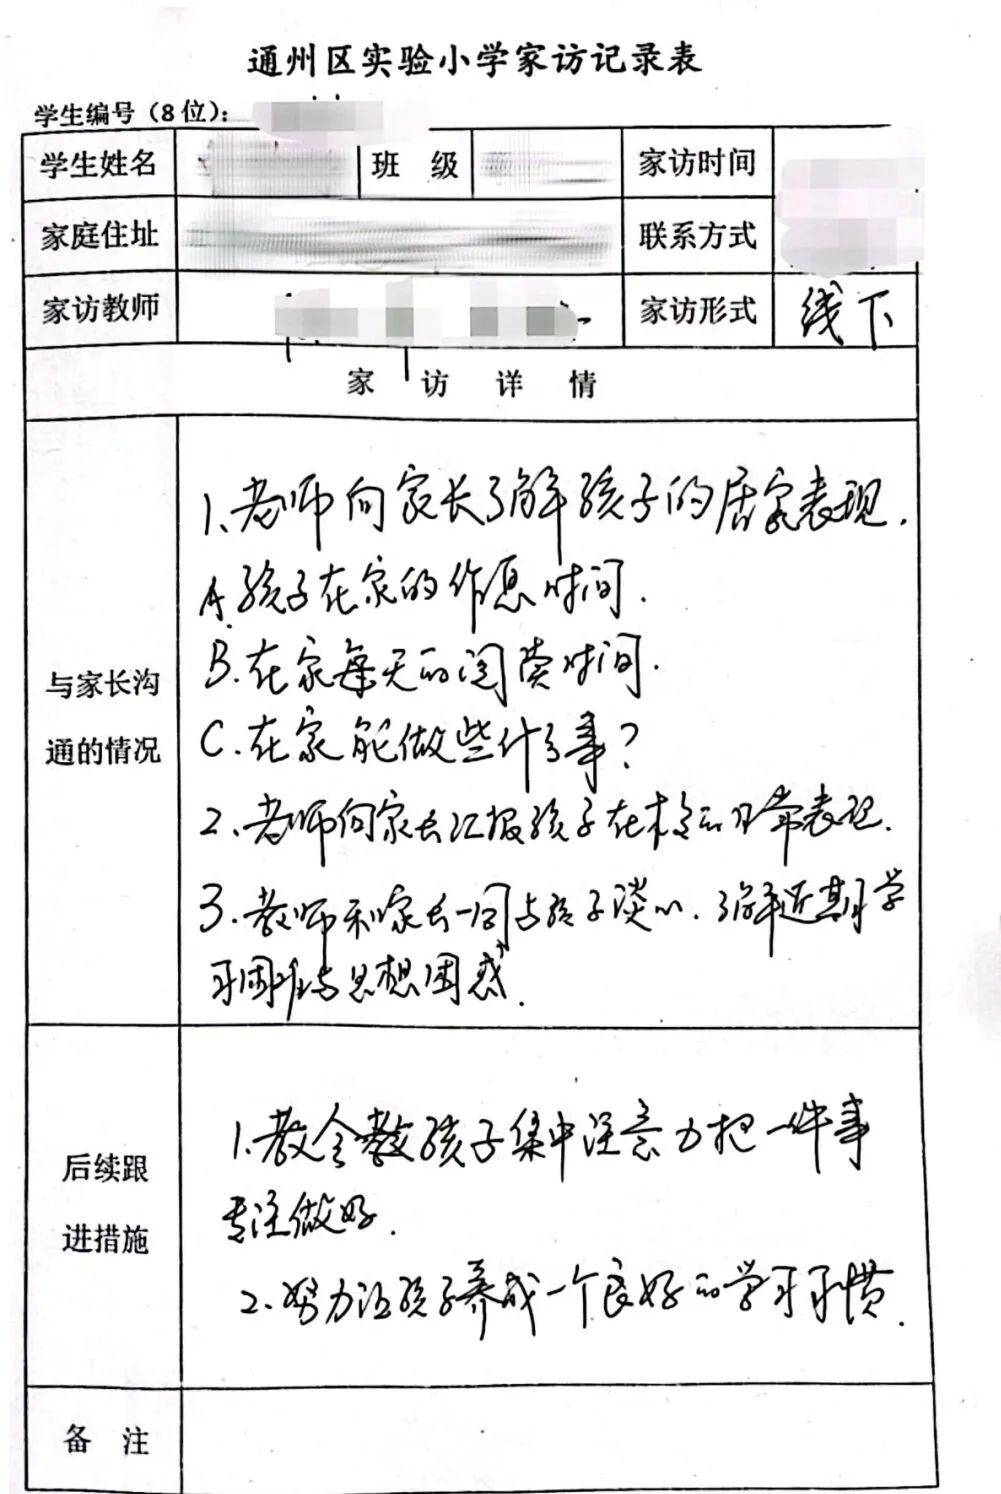 通州区实验小学家访记录表
学生编号（8位）：
学生姓名 班 级 家访时间
家庭住址 联系方式
家访教师 家访形式 线下
家 访 详 情
与家长沟
通的情况
1、老师向家长了解孩子的居家表现.
A.孩子在家的作息时间.
B.在家每天的阅读时间.
C.在家能做些什么事?
2、老师向家长汇报孩子在校的日常表现.
3.教师和家长一同与孩子谈心.了解近期学
习困难与思想困惑.
后续跟
进措施
1.教会教孩子集中注意力把一件事
专注做好.
2.努力让孩子养成一个良好的学习习惯.
备 注